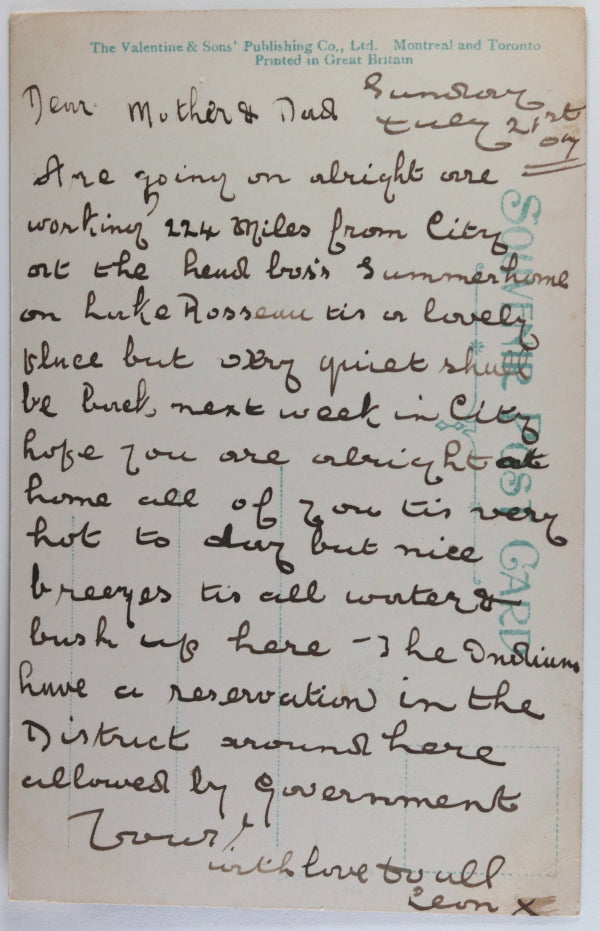 The Valentine & Sons' Publishing Co., Ltd. Montreal and Toronto
Printed in Great Britain
SOUVENIR POST CARD
Sunday
July 21st
07
Dear Mother & Dad
Are going on alright are
working 224 Miles from City
at the head bos's Summerhome
on Lake Rosseau tis a lovely
place but very quiet shall
be back next week in City
hope you are alright at
home all of you tis very
hot to day but nice
breezes tis all water &
bush up here - The Indians
have a reservation in the
District around here
allowed by Government
Yours
with love to all
Leon x